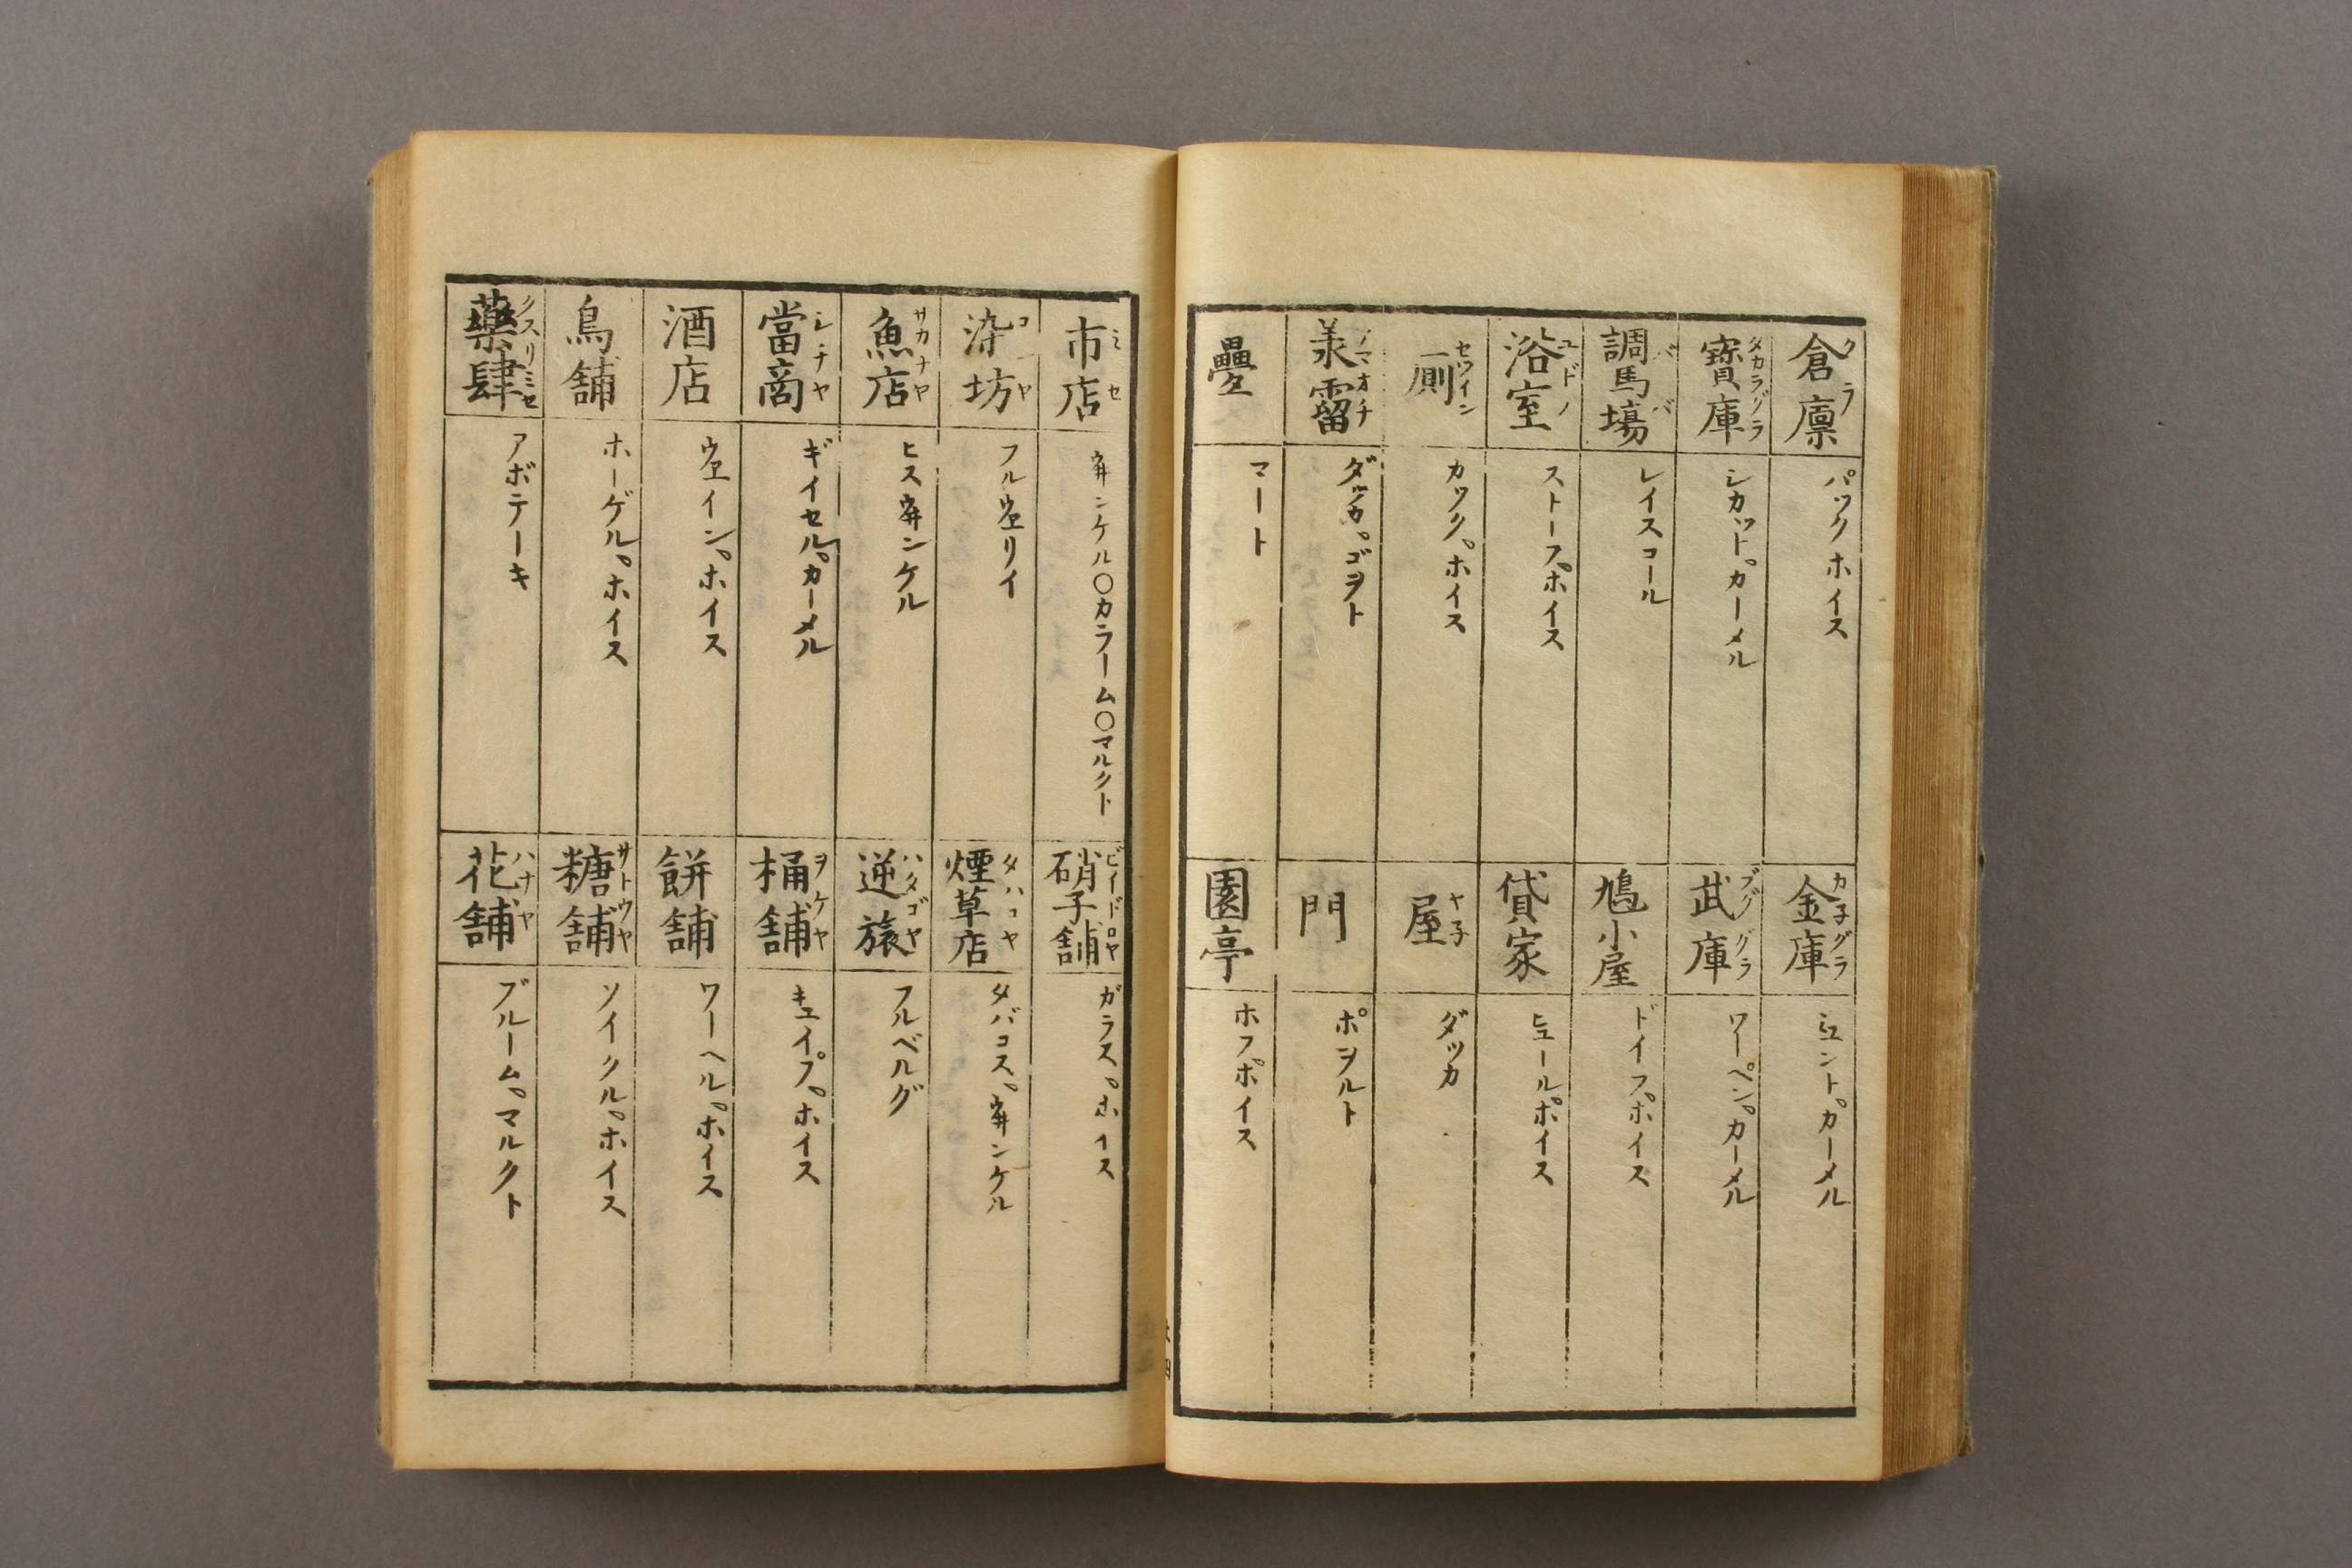 倉廩 クラ パックホイス
寶庫 タカラグラ シカット゚カーメル
調馬場 ババ レイスコール
浴室 ユドノ ストープホイス
厠 セツイン カック゚ホイス
霤 ノマオチ ダッカ゚ゴヲト
疊 マート
金庫 カ子グラ ミュント゚カーメル
武庫 ブググラ ワーペン゚カーメル
鳩小屋 ドイプホイス
貸家 ヒュールホイス
屋 ヤ子 ダッカ
門 ポヲルト
園亭 ホフホイス
市店 ミセ ヰンケル〇カラーム〇マルクト
染坊 コヤ フルウエリイ
魚店 サカナヤ ヒスヰンケル
當商 シチヤ ギイセル゚カーメル
酒店 ウエイン゚ホイス
鳥舗 ホーゲル゚ホイス
藥肆 クスリミセ アボテーキ
硝子舗 ビイドロヤ ガラス゚ホイス
煙草店 タハコヤ タバコス゚ヰンケル
逆旅 ハタゴヤ フルベルグ
桶舗 ヲケヤ キュイプ゚ホイス
餅舗 ワーヘル゚ホイス
糖舗 サトウヤ ソイクル゚ホイス
花舗 ハナヤ ブルーム゚マルクト